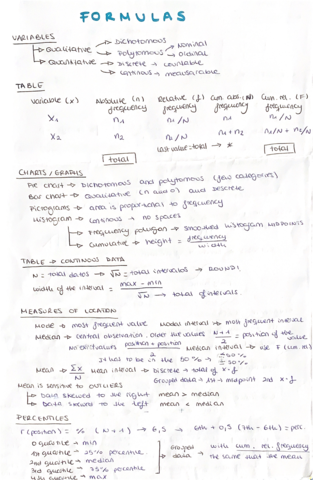 FORMULAS
VARIABLES
Qualitative
Dichotomous
Polytomous
Nominal
Ordinal
Quantitative
Discrete → countable
Continuous → measurable
TABLE
Variable (x) Absolute (n) frequency Relative (f) frequency Cum. abs. (N) frequency Cum. rel. (F) frequency
x1 n1 n1/N n1 n1/N
x2 n2 n2/N n1+n2 n1/N + n2/N
total last value = total → * total
CHARTS / GRAPHS
Pie chart → Dichotomous and polytomous (few categories)
Bar chart → Qualitative (n and o) and discrete
Pictograms → area is proportional to frequency
Histogram → continuous → no spaces
Frequency polygon → smoothed histogram midpoints
Cumulative → height = frequency / width
TABLE → CONTINOUS DATA
N = total dates → √N = total intervals → ROUND!
width of the interval = max - min / √N → total of intervals.
MEASURES OF LOCATION
Mode → most frequent value Modal interval → most frequent interval
Median → central observation. Order the values N+1/2 = position of the value
position + position / 2 Median interval → use F (cum. rel)
It has to be in the 50%
Mean → Σx/N Mean interval → Discrete → total of x·f
Grouped data → midpoint x·f
Mean is sensitive to OUTLIERS
data skewed to the right mean > median
data skewed to the left mean < median
PERCENTILES
(N+1) → 6,5 → 6th + 0,5 (7th - 6th) = per.
0 quartile → min
1st quartile → 25% percentile
2nd quartile → median
3rd quartile → 75% percentile
4th quartile → max
Grouped data → with cum. rel. frequency the same that the mean